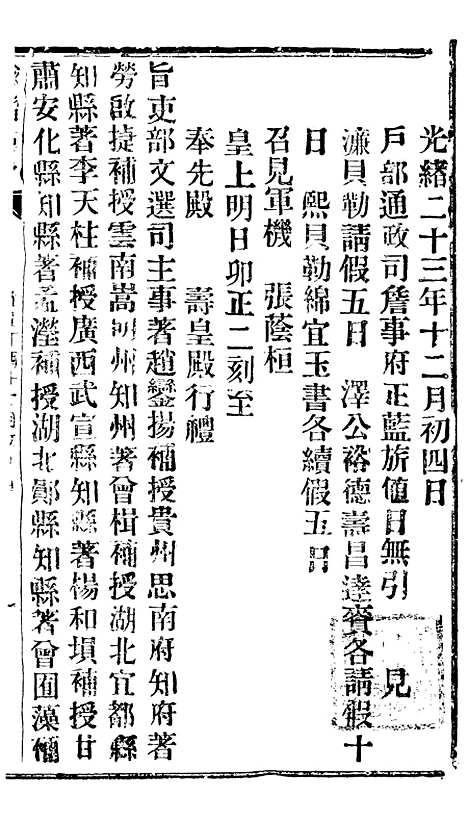 光緒二十三年十二月初四日
戶部通政司詹事府正藍旂值日無引　見
濂貝勒請假五日　澤公裕德壽昌達賚各請假十
日　熙貝勒綿宜玉書各續假五日
召見軍機　張蔭桓
皇上明日卯正二刻至
奉先殿　壽皇殿行禮
旨吏部文選司主事著趙鑾揚補授貴州思南府知府著
勞啟捷補授雲南嵩明州知州著曾楫補授湖北宜都縣
知縣著李天柱補授廣西武宣縣知縣著楊和塡補授甘
肅安化縣知縣著孟瀅補授湖北鄖縣知縣著曾囿藻補